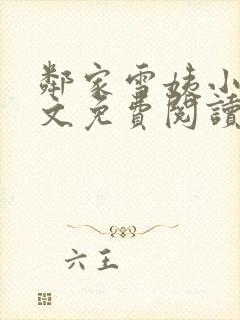 鄰家雪姨小
文免費閱讀
六王